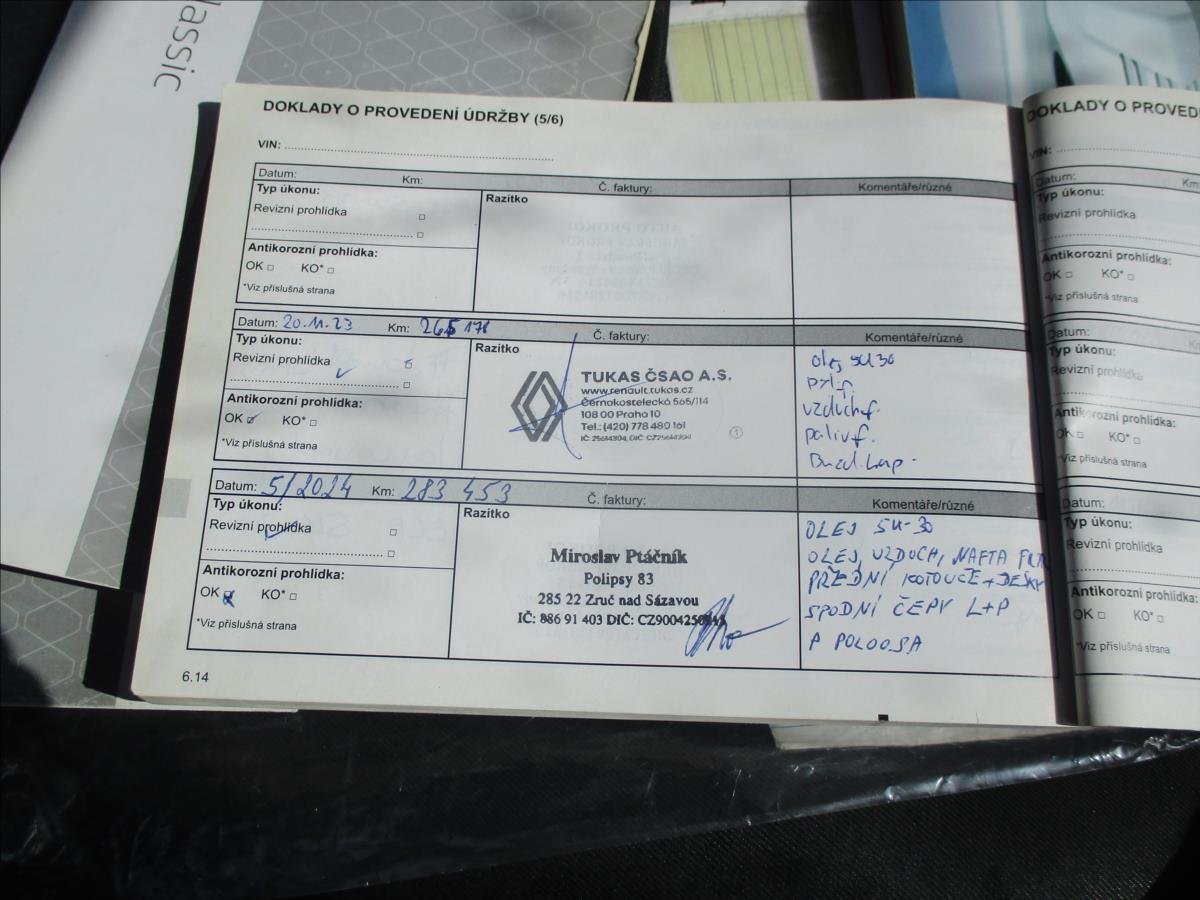 lassic
DOKLADY O PROVEDENÍ ÚDRŽBY (5/6)
VIN:
Datum: Km: Č. faktury: Komentáře/různé
Typ úkonu:
Razítko
Revizní prohlídka
Antikorozní prohlídka:
OK KO*
*Viz příslušná strana
Datum: 20.11.23 Km: 265 178 Č. faktury: Komentáře/různé
Typ úkonu:
Razítko
Revizní prohlídka
Antikorozní prohlídka:
OK KO*
*Viz příslušná strana
TUKAS ČSAO A.S.
www.renault.tukas.cz
Černokostelecká 565/114
108 00 Praha 10
Tel.: (420) 778 480 161
olej 5W30
pyl f.
vzduch f.
paliv f.
Datum: 5/2024 Km: 283 453 Č. faktury: Komentáře/různé
Typ úkonu:
Razítko
Revizní prohlídka
Antikorozní prohlídka:
OK KO*
*Viz příslušná strana
Miroslav Ptáčník
Polipsy 83
285 22 Zruč nad Sázavou
IČ: 886 91 403 DIČ:
OLEJ 5W-30
OLEJ, VZDUCH, NAFTA FILTR
PŘEDNÍ KOTOUČE + DESKY
SPODNÍ ČEPY L+P
P POLOOSA
6.14
DOKLADY O PROVEDE
VIN:
Datum: Km
Typ úkonu:
Revizní prohlídka
Antikorozní prohlídka:
OK KO*
*Viz příslušná strana
Datum: Km
Typ úkonu:
Revizní prohlídka
Antikorozní prohlídka:
OK KO*
*Viz příslušná strana
Datum:
Typ úkonu:
Revizní prohlídka
Antikorozní prohlídka:
OK KO*
*Viz příslušná strana